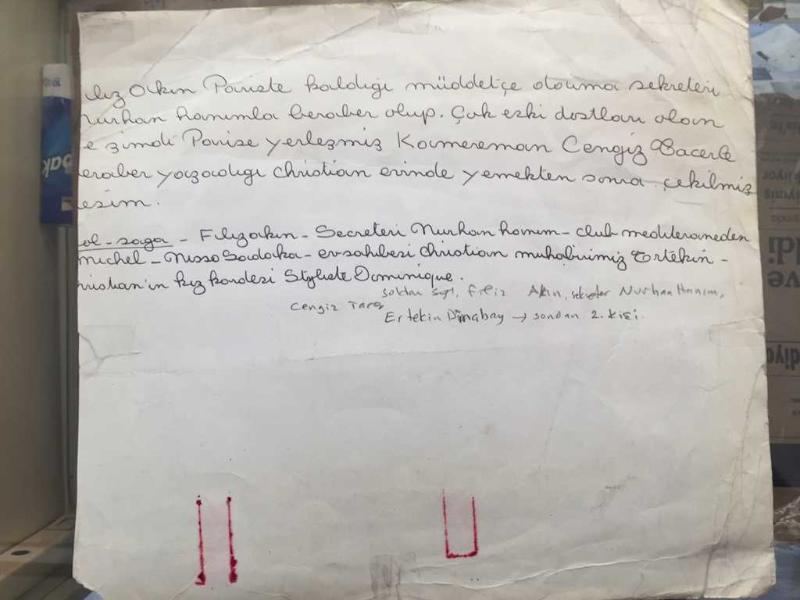 ıliz Akın Pariste kaldığı müddetçe daima sekreteri
urhan hanımla beraber olup. Çok eski dostları olan
e şimdi Parise yerleşmiş Kameraman Cengiz Tacerle
eraber yaşadığı Christian evinde yemekten sonra çekilmiş
esim.
ol-sağa - Filizakın - Secreteri Nurhan hanım - club mediteraneden
michel - Nisso Sadaka - ev sahibesi Christian muhabirimiz Ertekin -
hristian'ın kız kardeşi Styliste Dominique.
soldan sağa, Filiz Akın, sekreter Nurhan Hanım,
Cengiz Tacer
Ertekin Dinabay → sondan 2. kişi.
bak